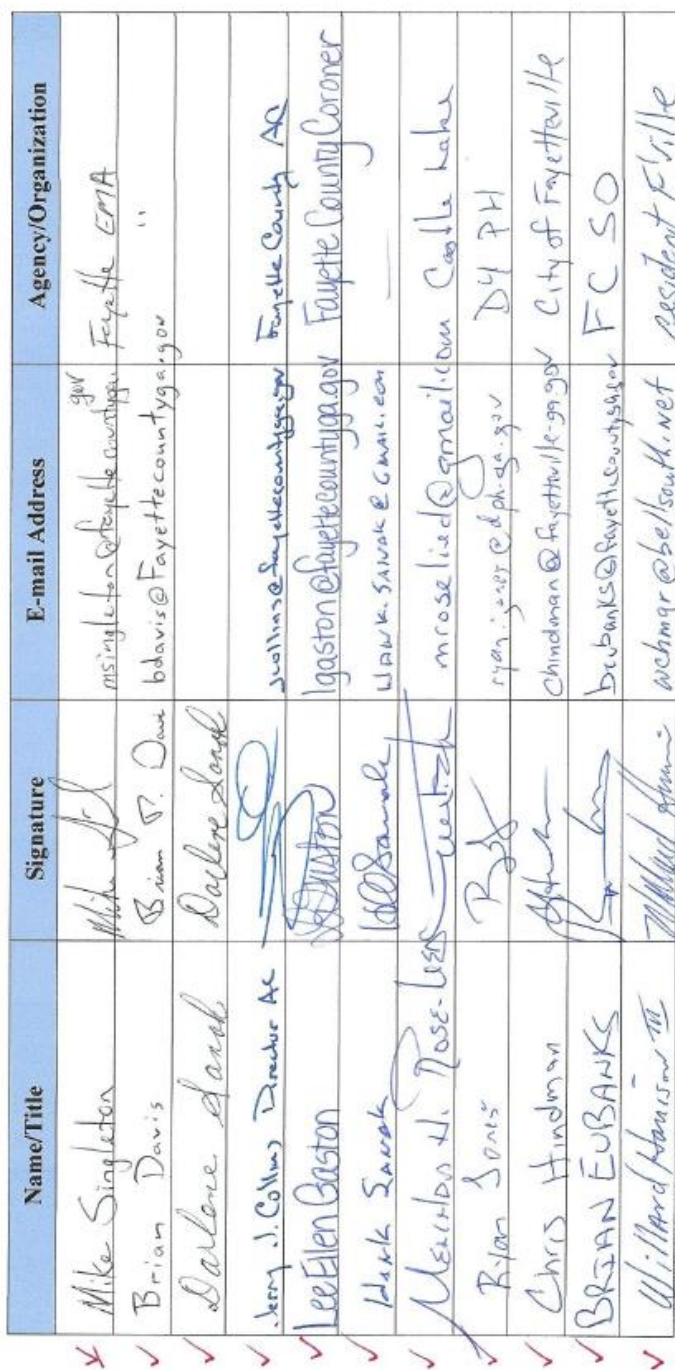 Name/Title Signature E-mail Address Agency/Organization
Mike Singleton msingleton@fayettecountyga.gov Fayette EMA
Brian Davis Brian P. Davis bdavis@Fayettecountyga.gov "
Darlene Sanak Darlene Sanak
Jerry J. Collins Director AC jcollins@fayettecountyga.gov Fayette County AC
LeeEllen Gaston LGaston lgaston@fayettecountyga.gov Fayette County Coroner
Hank Sanak HSanak HANK.SANAK@GMAIL.COM —
H. Rose-Lied mroselied@gmail.com Castle Lake
Ryan Jones ryan.jones@dph.ga.gov D4 PH
Chris Hindman chindman@fayetteville-ga.gov City of Fayetteville
BRIAN EUBANKS beubanks@fayettecountyga.gov FCSO
Willard Harrison III wchmar@bellsouth.net resident F'ville